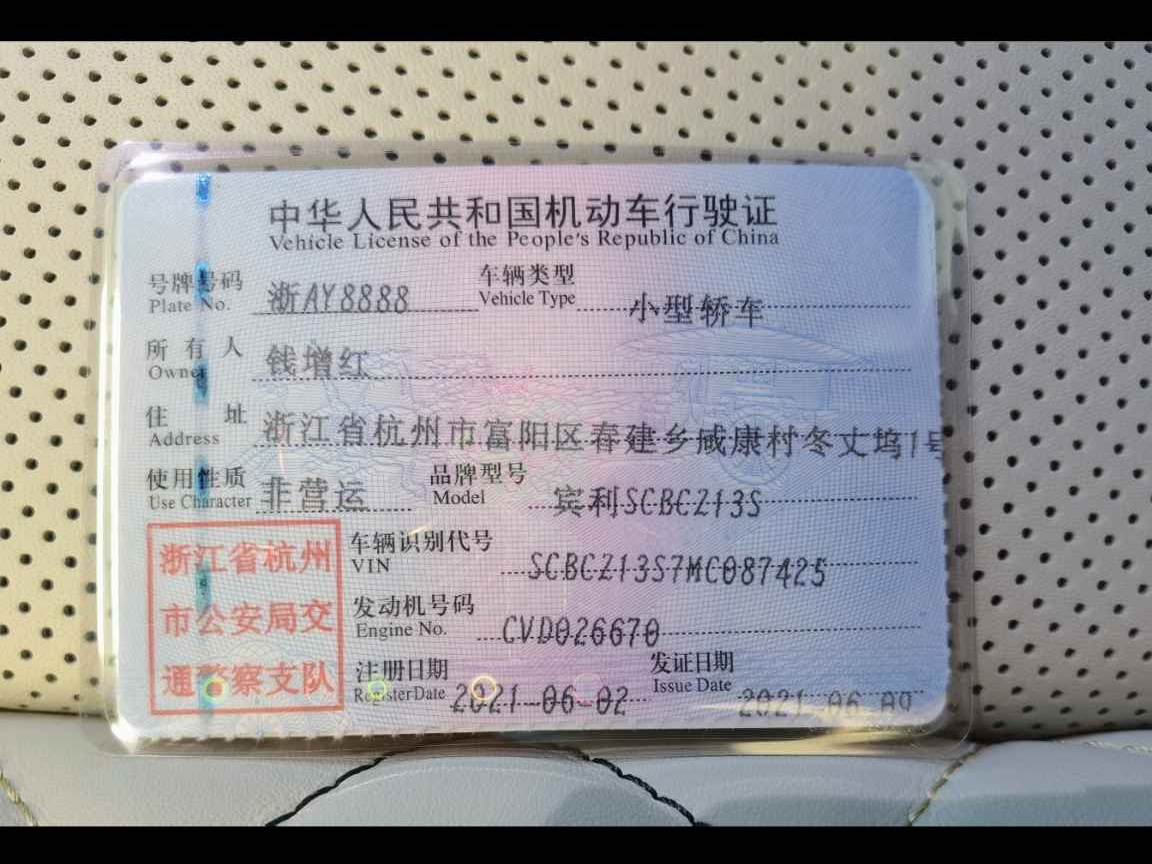 中华人民共和国机动车行驶证
Vehicle License of the People's Republic of China
号牌号码 浙AY8888 车辆类型 小型轿车
Plate No. Vehicle Type
所有人 钱增红
Owner
住址 浙江省杭州市富阳区春建乡咸康村冬丈坞1号
Address
使用性质 非营运 品牌型号 宾利SCBCZ13S
Use Character Model
浙江省杭州
市公安局交
通警察支队
车辆识别代号 SCBCZ13S7MC087425
VIN
发动机号码 CVD026670
Engine No.
注册日期 2021-06-02 发证日期 2021-06-09
Register Date Issue Date